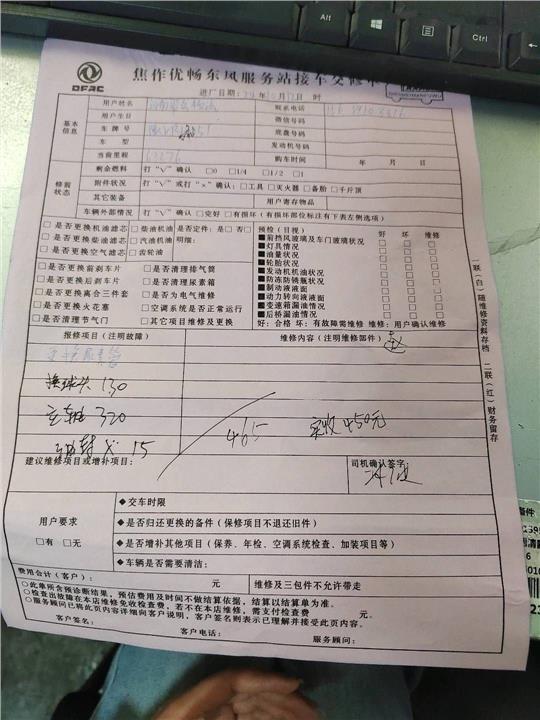 Alt
Ctrl
DFAC
焦作优畅东风服务站接车交修单
进厂日期: 月 日 时
基本信息
用户姓名 联系电话
用户生日 微信号码
车牌号 底盘号码
车型 发动机号码
当前里程 购车时间 年 月 日
修前状态
剩余燃料 打“√”确认 □0 □1/4 □1/2 □1
附件状况 打“√”或打“×”确认: □工具 □灭火器 □备胎 □千斤顶
其它装备 用户寄存物品
车辆外部情况 打“√”确认 □完好 □有损坏(有损坏部位标注有下表左侧选项)
□是否更换机油滤芯 □柴油机油 是否定件: □是 □否
□是否更换柴油滤芯 □汽油机油 明细:
□是否更换空气滤芯 □齿轮油
□是否更换前刹车片 □是否清理排气筒
□是否更换后刹车片 □是否清理尿素箱
□是否更换离合三件套 □是否为电气维修
□是否更换火花塞 □空调系统是否正常运行
□是否清理节气门 □其它项目维修及更换
预检(目视) 好 坏 维修
■前挡风玻璃及车门玻璃状况 □ □ □
■灯具情况 □ □ □
■油量状况 □ □ □
■轮胎状况 □ □ □
■发动机机油状况 □ □ □
■防冻防锈瓶状况 □ □ □
■制动液液面 □ □ □
■动力转向液液面 □ □ □
■变速箱漏油情况 □ □ □
■后桥漏油情况 □ □ □
好: 合格 坏: 有故障需维修 维修: 用户确认维修
一联(白)随维修资料存档 二联(红)财务留存
报修项目(注明故障) 维修内容(注明维修部件)
换球头 130
320
15
465 实收450元
建议维修项目或增补项目: 司机确认签字
用户要求
□有 □无
◆交车时限
◆是否归还更换的备件(保修项目不退还旧件)
◆是否增补其他项目(保养、年检、空调系统检查、加装项目等)
◆车辆是否需要清洁:
费用合计(客户): 元 维修及三包件不允许带走
○此单所含预诊断结果,预估费用及时间不做结算依据,结算以结算单为准。
○检查出故障在本店维修免收检查费,若不在本店维修,需支付检查费 元。
○服务顾问已将此页内容详细向客户说明,客户签名则表示已理解并接受此页内容。
客户签名: 客户电话: 服务顾问: